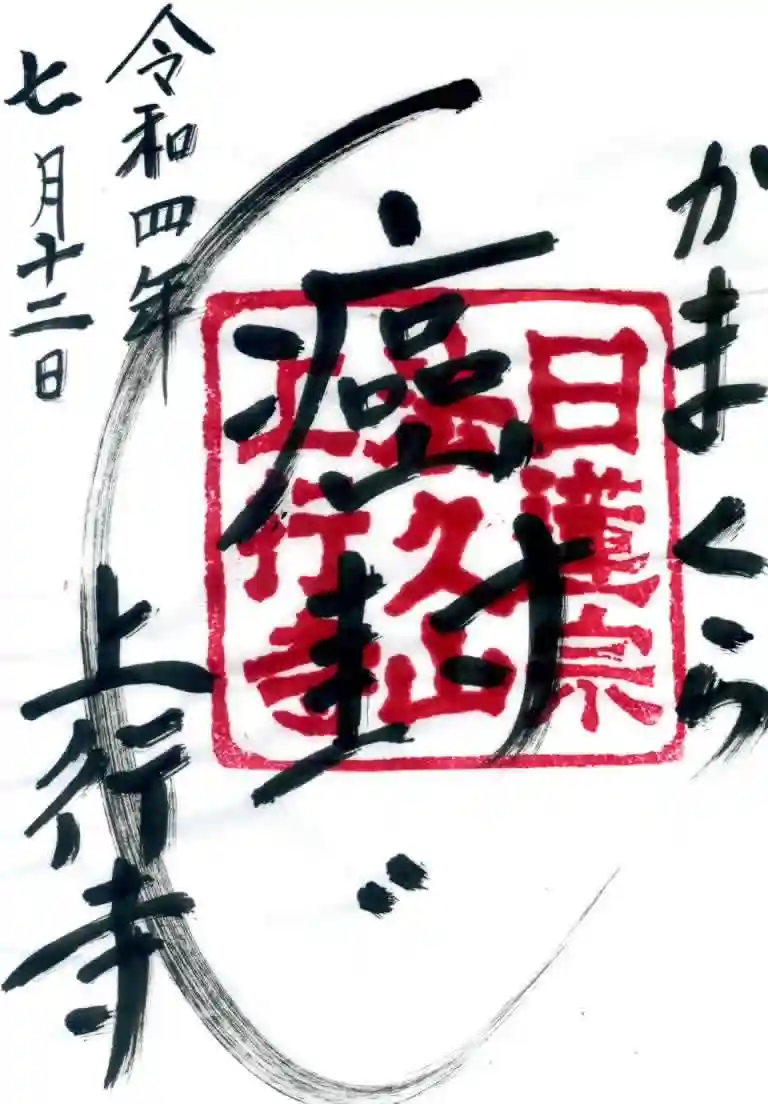 かまくら
癌封じ
日蓮宗
法久山
上行寺
令和四年
七月十二日
上行寺